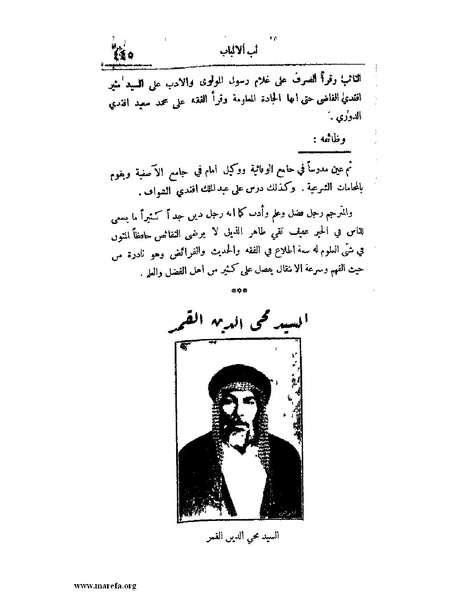 لب الالباب
٤٤٥
النائب وقرأ الصرف على غلام رسول المولوى والادب على السيد منير
افندي القاضي حتى انها الجادة المعلومة وقرأ الفقه على محمد سعيد افندي
الدوري .
وظائفه :
ثم عين مدرساً في جامع الوفائية ووكيل امام في جامع الآصفية ويقوم
بالمحامات الشرعية . وكذلك درس على عبد الملك افندي الشواف .
والمترجم رجل فضل وعلم وأدب كما انه رجل دين جداً كثيراً ما يسعى
للناس في الخير عفيف تقي طاهر الذيل لا يرضى النقائص حافظاً للمتون
في شتى العلوم له سعة اطلاع في الفقه والحديث والفرائض وهو نادرة من
حيث الفهم وسرعة الانتقال يفضل على كثير من اهل الفضل والعلم .
***
السيد محي الدين القمر
السيد محي الدين القمر
www.marefa.org